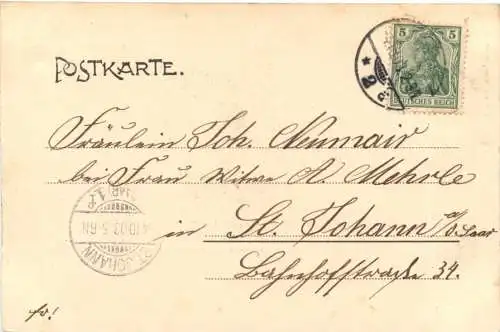 POSTKARTE.
5 5
DEUTSCHES REICH
* 2 d.
Fräulein Joh. Neumair
bei Frau Witwe A. Mehrle
in St. Johann a/d. Saar
Bahnhofstrasse 34.
ST. JOHANN
10.03.5-6N
fr!